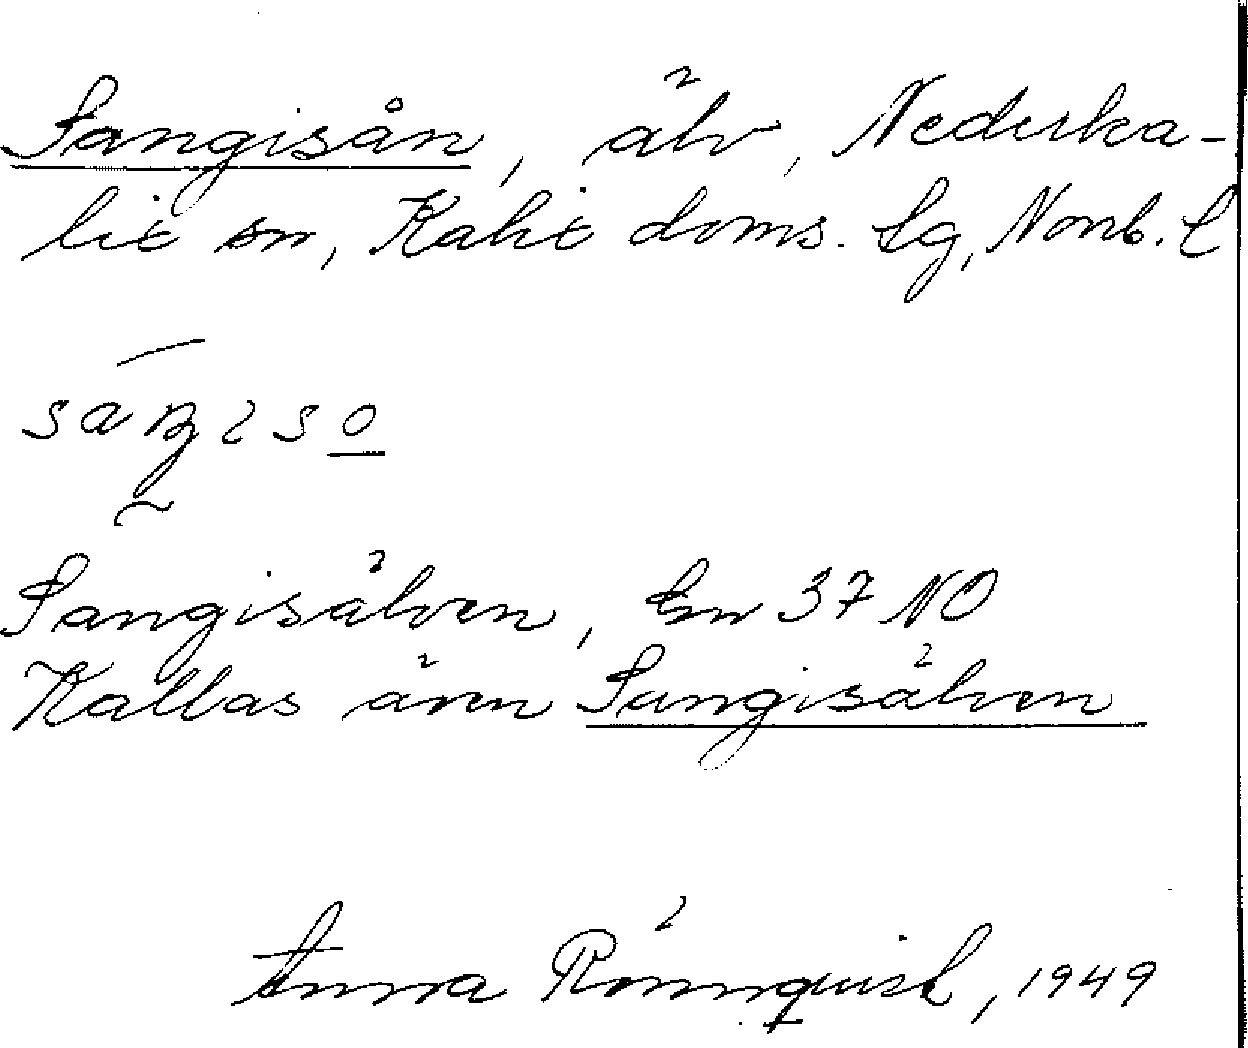 Sangisån, älv, Nederka-
lix sn, Kalix doms. Lg, Norrb. l
Sangisälven, Gsv 37 NO
Kallas även Sangisälven
Anna Rönnquist, 1949